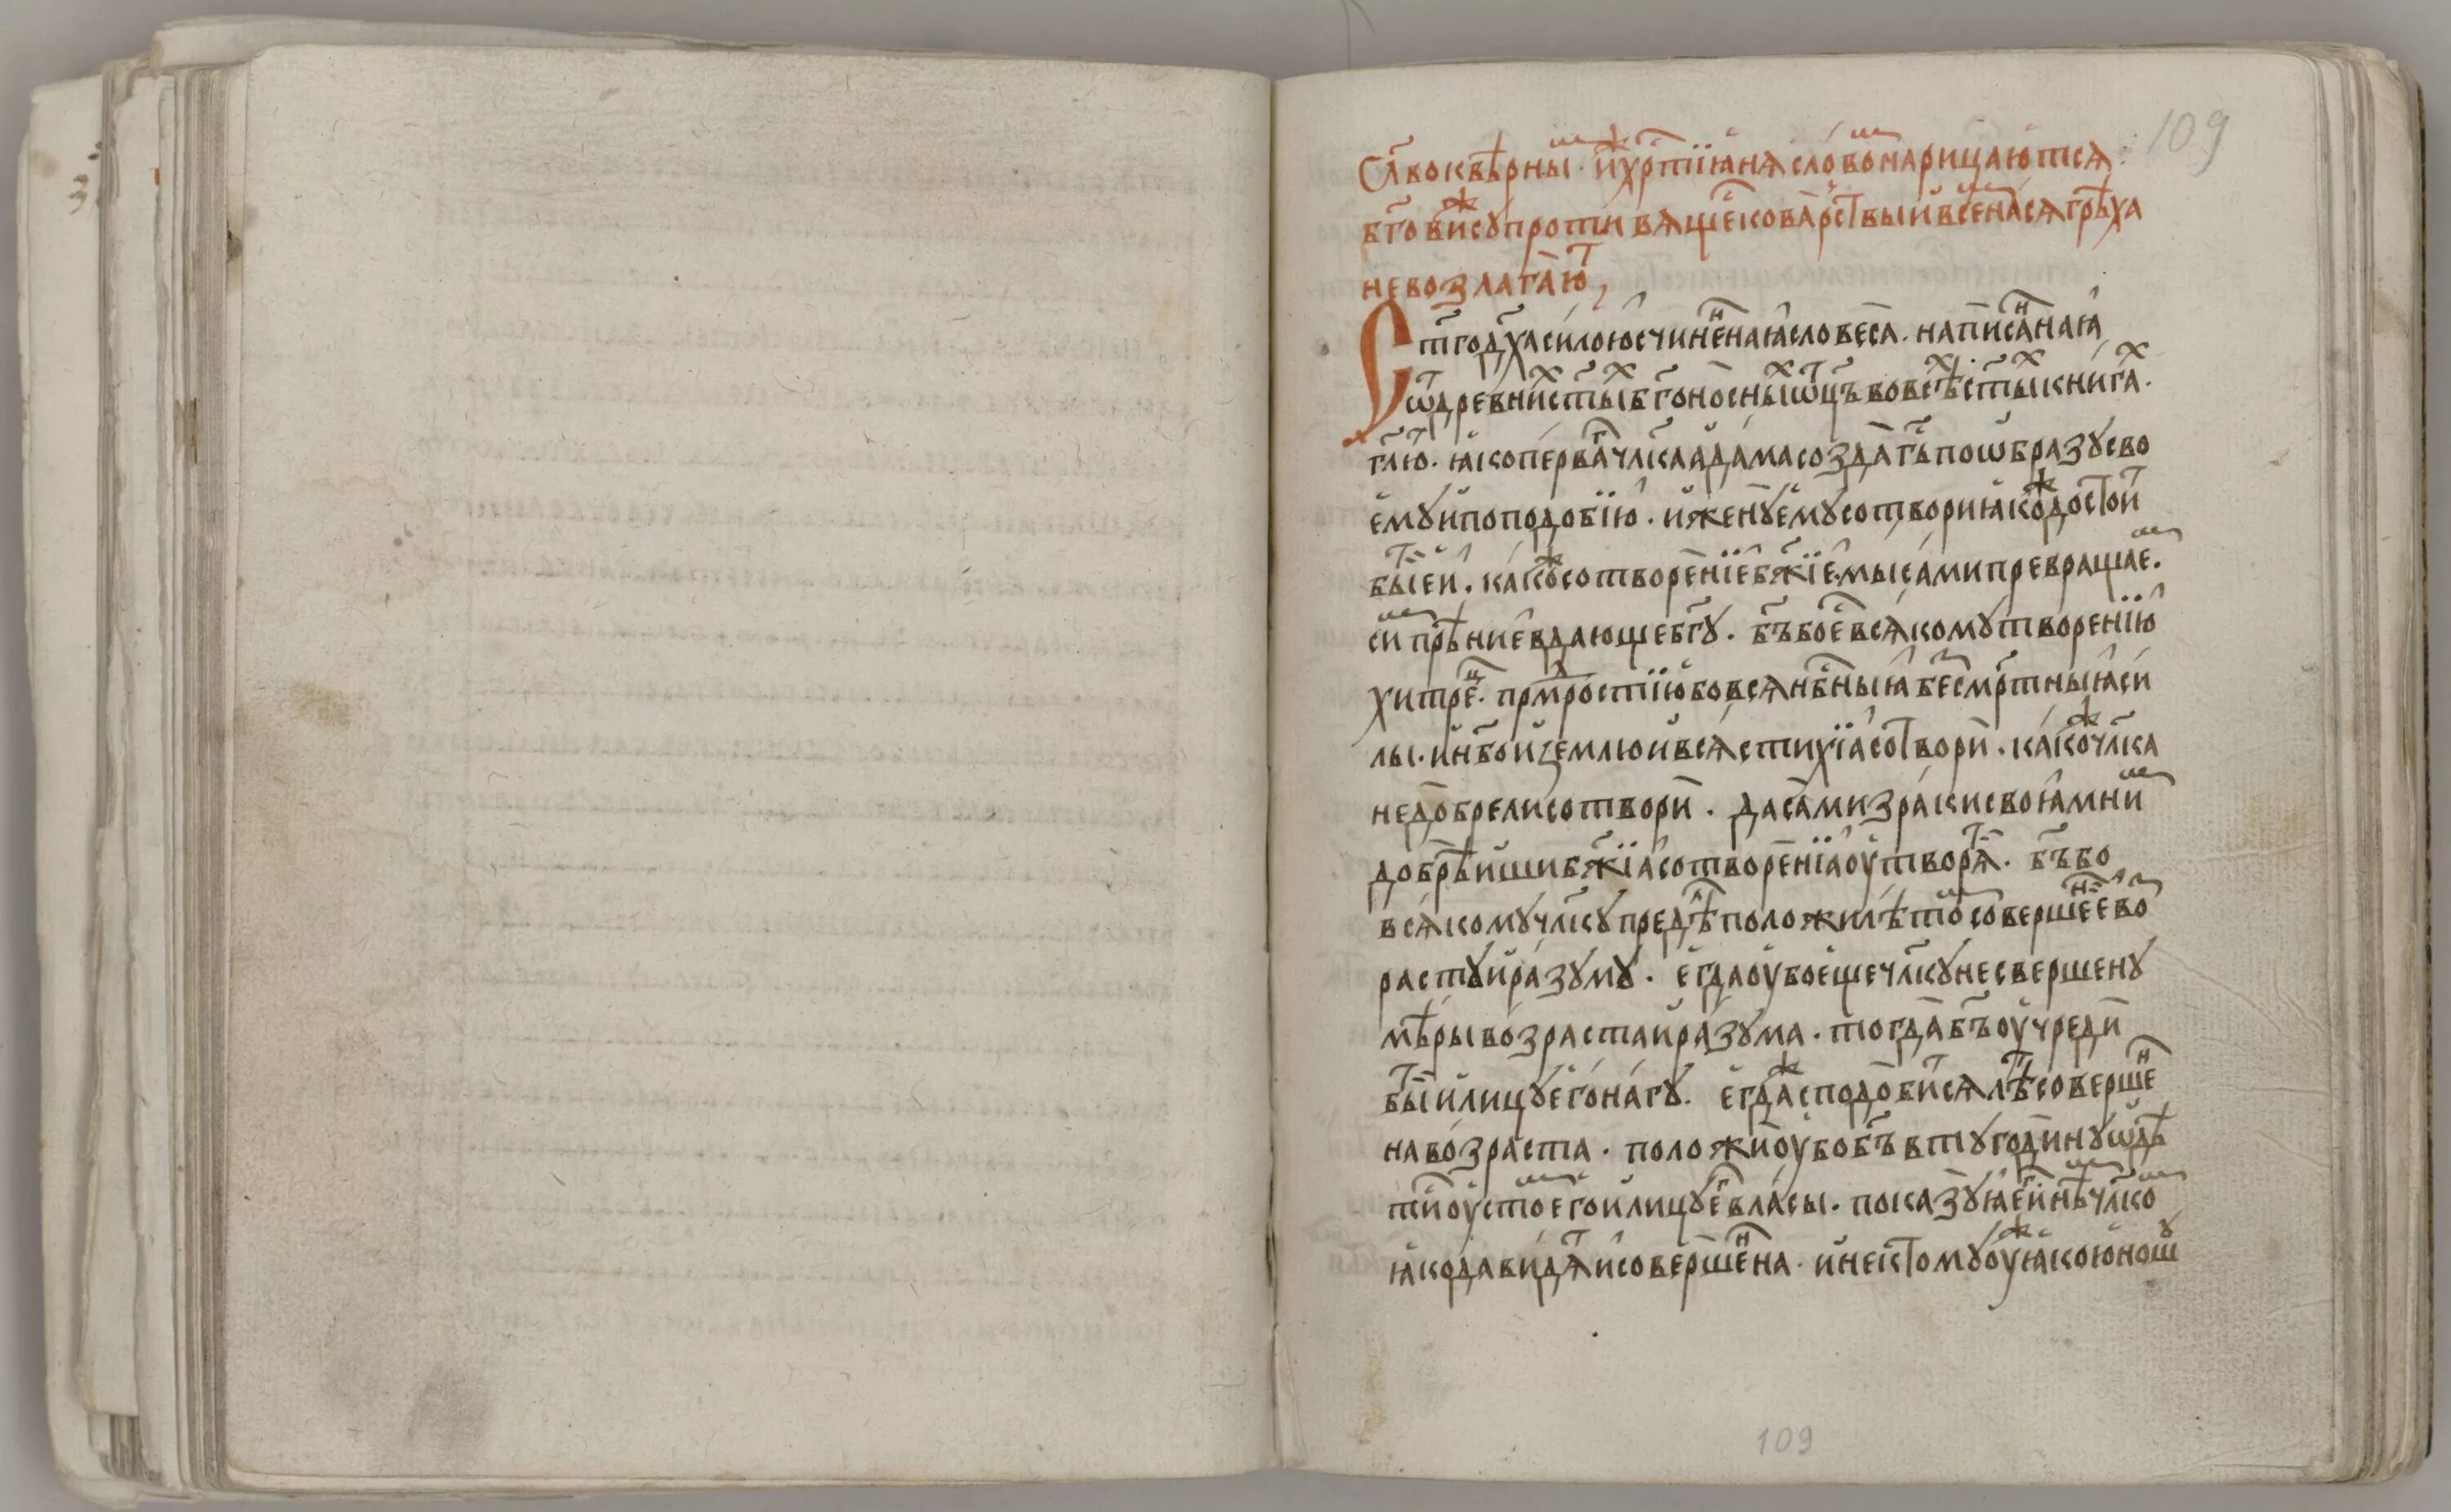 109
Сл҃вок вѣрны · и҆хрⷭ҇тїꙗня словоⷨнарицаютсѧ :
бг҃овиⷤсꙋпротивѧщеⷭ҇коварⷭ҇твыивсенасѧгрѣха
невозлагаюⷮ,
Ст҃годх҃асилоюсчиненⷩаꙗсловеса · написаⷩнаꙗ
ѿдревниⷯст҃ыⷯбг҃оносныⷯѿц҃ъвовсѣⷯст҃ыⷯкнигаⷯ ·
гл҃ю · ꙗкоперваⷢ҇чл҃каадамасоздагь҃поѡбразꙋсво
емꙋипоподобїю · иженꙋемꙋсотвориꙗкоⷤдостоиⷮ
бытⷭ҇ и҆еи · какоⷤсотворенїебж҃їемысамипревращаеⷨ ·
симⷨпрѣниевдающебг҃ꙋ · бг҃ъбоⷭ҇евсѧкомꙋтворенїю
хитреⷰ҇ · прⷨⷣростїюбовсѧнбⷭ҇ныꙗбесмрⷮ҇ныꙗси
лы · инб҃оиꙁемлюивсѧстихїасотвори · какоⷤчл҃ка
недобрелисотвори · дасамизракисвоꙗмниⷨ
добрѣишибж҃їасотворенїаоутворѧⷮ · бг҃ъбо
всѧкомꙋчл҃кꙋпредѣⷧположилѣтоⷨсовершеⷩеⷢево
растꙋиразꙋмꙋ · егдаоубоещечл҃кꙋнесвершенꙋ
мѣрывозрастаиразꙋма · тогдабг҃ъоучреди
бытⷭ҇иилицꙋегонагꙋ · егдаⷤсподобисѧлѣⷮсоверше
навозраста · положиоубобг҃ъвтꙋгодинꙋѡдѣ
тиоустоⷨегоилицꙋеⷢ҇власы · показꙋꙗеⷢ҇инѣⷨчл҃коⷨ
ꙗкодавидѧⷮисовершеⷩна · инектомꙋоуⷤꙗкоюношꙋ
109